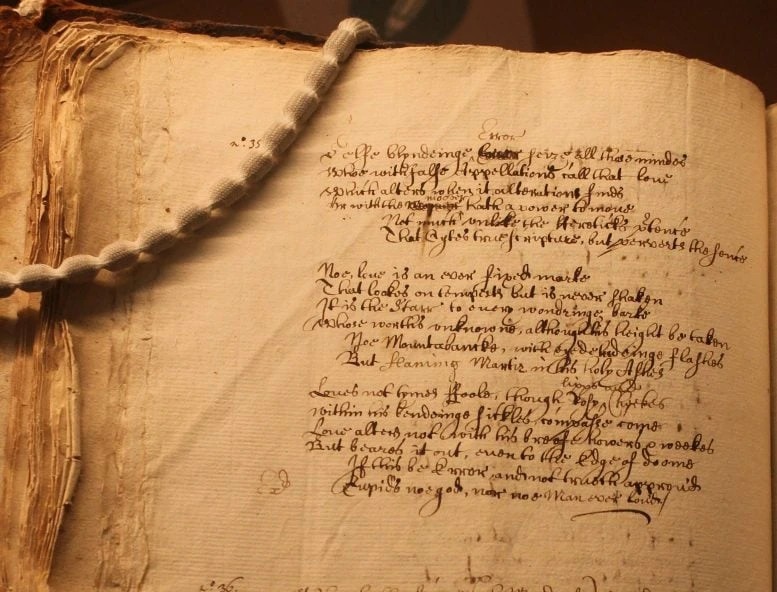 no: 35
Error
Selfe blyndeinge seize all those mindes
Whoe with false Appellations call that love
Which alters when it alterations finds
mover
Or with the hath a power to move
Not much unlike the Hereticks ptence
That Cytes true scripture, but perverts the sence
Noe, love is an ever fixed marke
That lookes on tempests but is never shaken
It is the Starr to every wondringe barke
Whose worths unknowne, although his height be taken
Noe Mountabancke, with eye deludeinge flashes
But flaming Martir in his holy Ashes
lipps and
Loves not tymes Foole, though Rosy Cheekes
within his bendeinge sickles compasse come
Love alters not with his breif howers & weekes
But beares it out, even to the Edge of doome
If this be Error and not truth approvd
Cupids noe god, nor noe Man ever lovd
no: 36